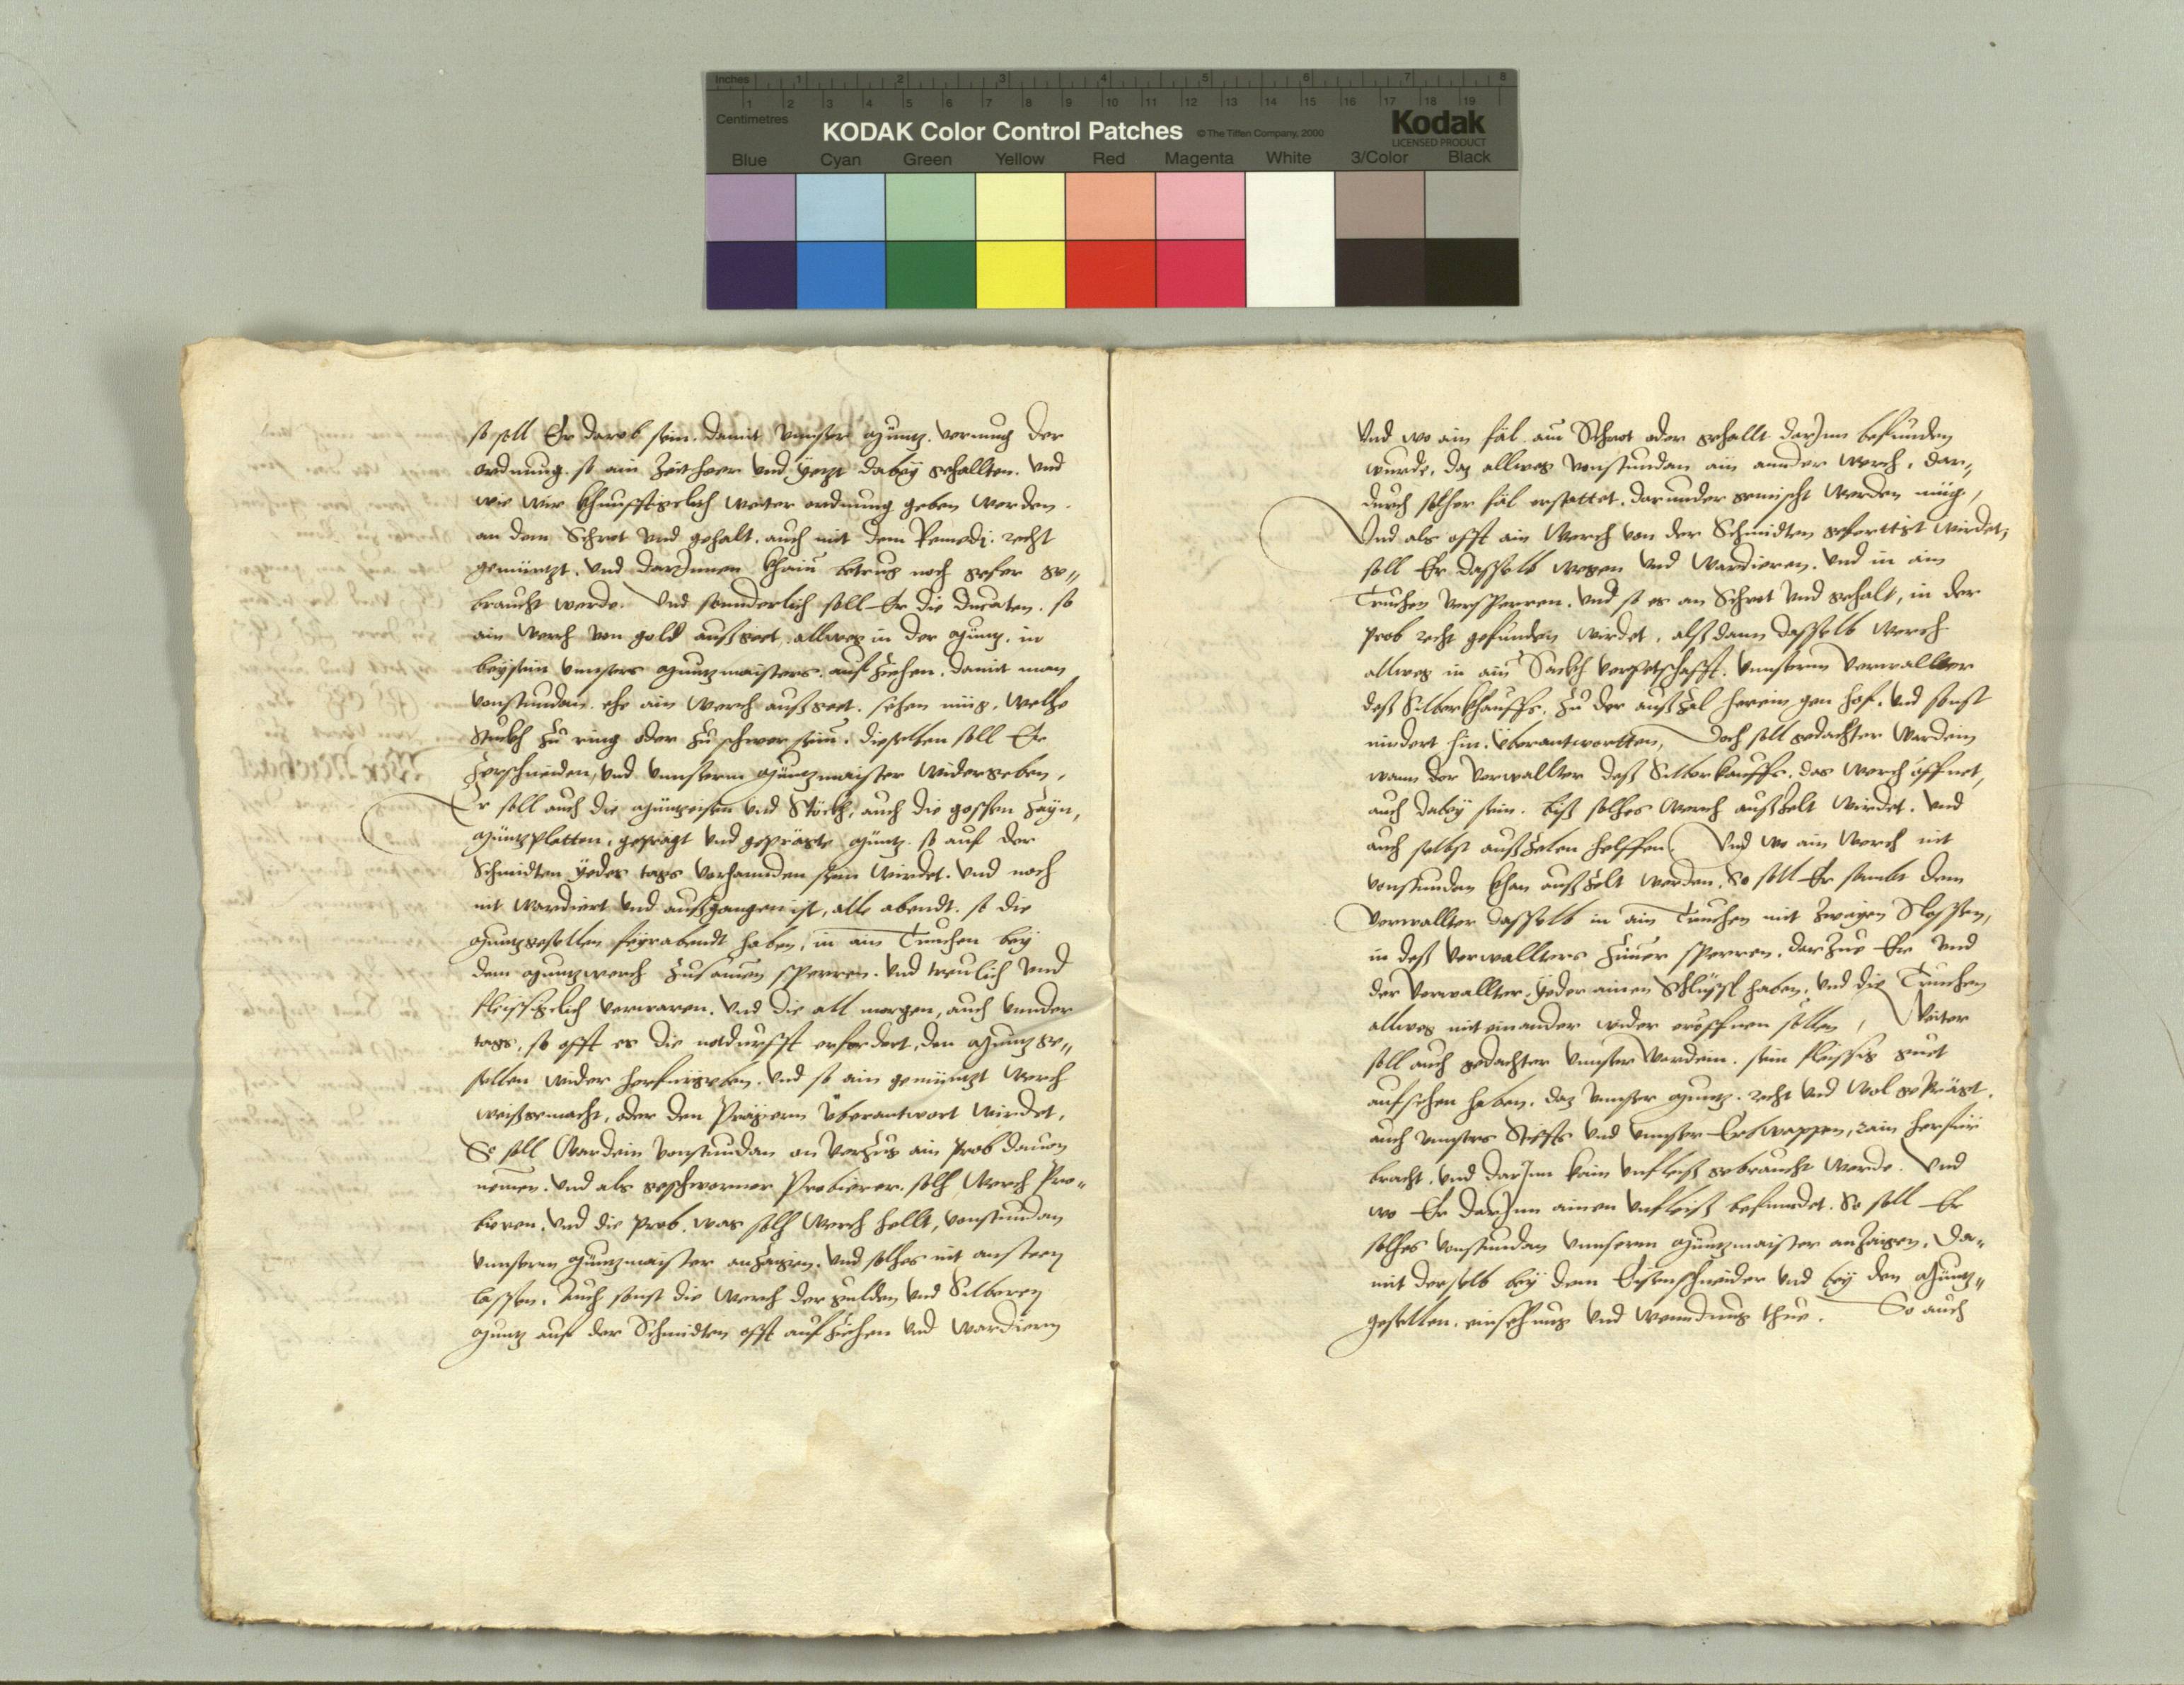 Inches 1 2 3 4 5 6 7 8
Centimetres 1 2 3 4 5 6 7 8 9 10 11 12 13 14 15 16 17 18 19
KODAK Color Control Patches © The Tiffen Company, 2000 Kodak
LICENSED PRODUCT
Blue Cyan Green Yellow Red Magenta White 3/Color Black
so soll Er darob sein. damit vnnser Müntz. vermug der
ordnung. so ain Zeitheer vnd yetzt dabey gehallten. vnd
wie wir khunfftigclich weiter ordnung geben werden.
an dem Schrot vnd gehalt. auch mit dem Remedj. recht
gemüntzt. vnd darJnnen khain betrug noch gefer ge„
braucht werde. Vnd sonnderlich soll Er die Ducaten. so
ain Werch von gold außgeet, allweg in der Müntz. in
beysein vnnsers Müntzmaisters. auf ziehen. damit man
vonstundan. ehe ain Werch außgeet. sehen müg. welche
Stuckh zu ring oder zu schwer sein. dieselben soll Er
Zerschneiden, vnd vnnserm Müntzmaister widergeben.
Er soll auch die Müntzeisen vnd Stöckh, auch die gossen Zayn,
Müntzplatten. gepregt vnd gepräckte Müntz. so auf der
Schmidten yedes tags vorhannden sein wirdet. vnd noch
nit wardiert vnd außgangen ist, alle abendt. so die
Müntzgesellen feyrabendt haben, in ain Truchen bey
dem Müntzwerch zusamen sperren. vnd treulich vnd
fleissigclich verwaren. Vnd die all morgen, auch vnnder
tags, so offt es die notdurfft erfordert, den Müntzge„
sellen wider herfürgeben. Vnd so ain gemüntzt Werch
weißgemacht, oder den Prägern überantwort wirdet,
So soll Wardein vonstundan on verzug ain prob dauon
nemen. Vnd als geschworner Probierer. solh Werch Pro„
bieren. Vnd die prob. was solh Werch hellt, vonstundan
vnnserm Müntzmaister anzaigen. Vnd solhes nit ansteen
lassen. Auch sonst die Werch der gulden vnd Silberen
Müntz auf der Schmidten offt auf ziehen vnd Wardiern
Vnd wo ain fäl. am Schrot oder gehallt darJnn befunden
wurde, daz allweg vonstundan ain annder Werch. dar„
durch solher fäl erstattet. darunder gemischt werden müg,
Vnd als offt ain Werch von der Schmidten gefertigt wirdet,
soll Er dasselb wegen vnd Wardieren. Vnd in ain
Truchen versperren. Vnd so es an Schrot vnd gehalt, in der
prob recht gefunden wirdet, alßdann dasselb Werch
allweg in ain Sackh verpetschafft. vnnserm Verwallter
deß Silberkhauffs. zu der außzal herein gen hof. vnd sonst
nindert hin. überantwortten, Doch soll gedachter Wardein
wann der Verwallter deß Silberkauffs. das Werch öffnet,
auch dabey sein. biß solhes Werch außzelt wirdet. Vnd
auch selbst außzelen helffen. Vnd wo ain Werch nit
vonstundan khan außzelt werden. So soll Er sambt dem
Verwallter dasselb in ain Truchen mit zwayen Slossen,
in deß Verwallters zimer sperren. darzue Er vnd
der Verwallter. yeder ainen Schlüssl haben. Vnd die Truchen
allweg miteinander wider eröffnen sollen, Weiter
soll auch gedachter vnnser Wardein. sein fleissig guet
aufsehen haben. daz vnnser Müntz. recht vnd wol gepräckt.
auch vnnsers Stiffts vnd vnnser Erbwappen, rain herfür
bracht. vnd darJnn kain vnfleiß gebraucht werde. Vnd
wo Er darJnn ainen vnfleiß befindet. So soll Er
solhes vonstundan vnnserm Müntzmaister anzaigen, Da„
mit derselb bey dem Eisenschneider vnd bey den Müntz„
gesellen. einsehung vnd wenndung thue. So auch